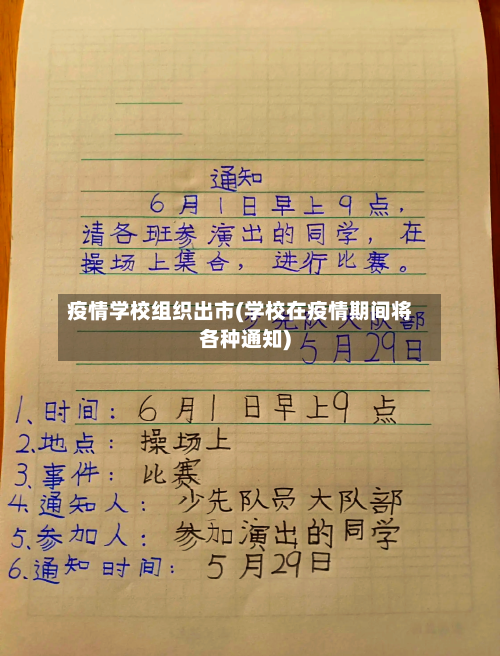 通知
6月1日早上9点，
请各班参演出的同学，在
操场上集合，进行比赛。
疫情学校组织出市(学校在疫情期间将
各种通知)
少先队大队部
5月29日
1、时间：6月1日早上9点
2.地点：操场上
3、事件：比赛
4.通知人：少先队员大队部
5.参加人：参加演出的同学
6.通知时间：5月29日